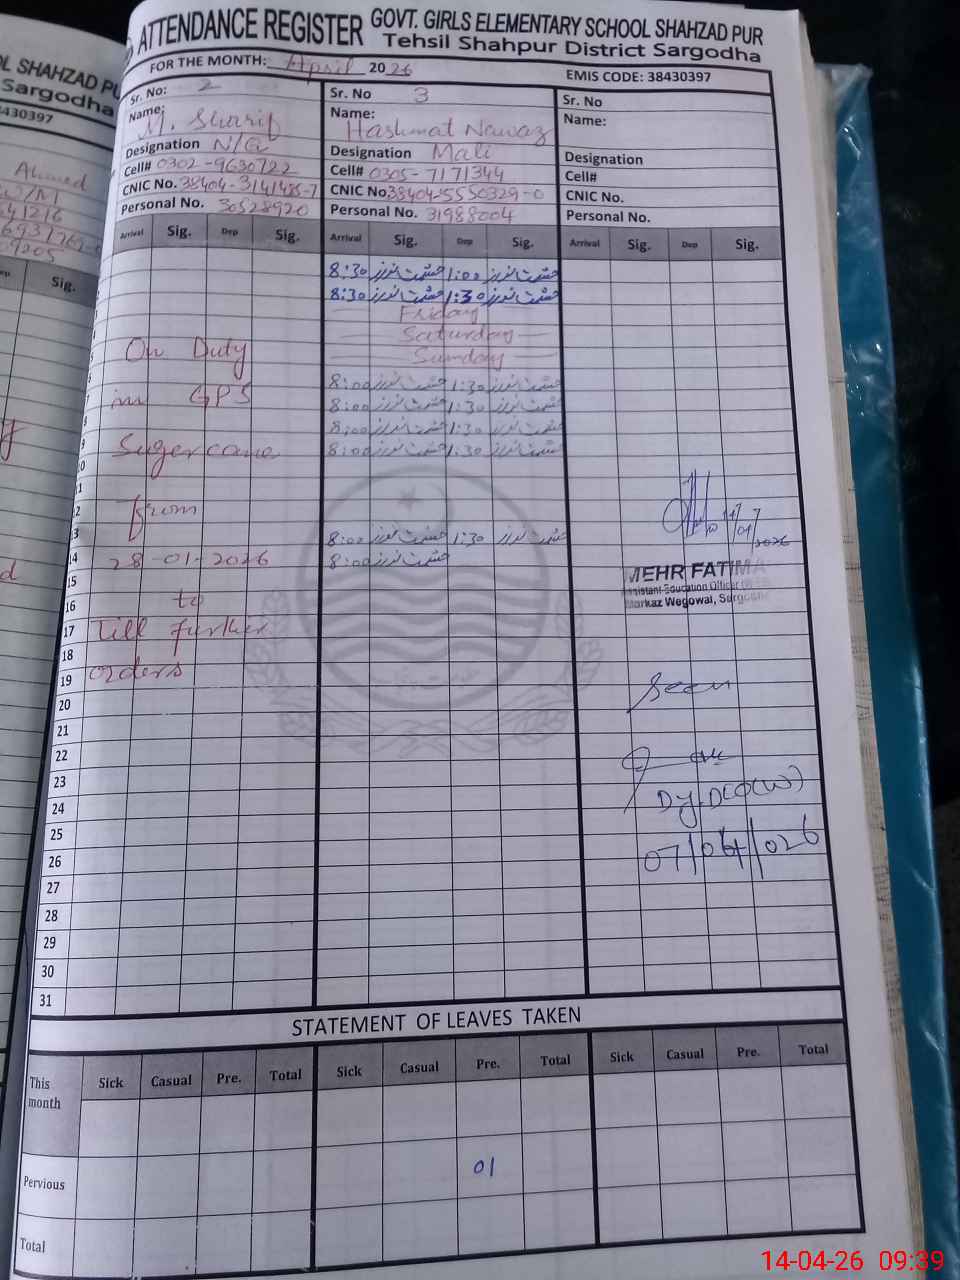 ATTENDANCE REGISTER GOVT. GIRLS ELEMENTARY SCHOOL SHAHZAD PUR
Tehsil Shahpur District Sargodha
FOR THE MONTH: April 2026 EMIS CODE: 38430397
Sr. No: 2
Name: M. Sharif
Designation N/Q
Cell# 0302-9630722
CNIC No. 38404-3141485-7
Personal No. 30528920
Sr. No 3
Name: Hashmat Nawaz
Designation Mali
Cell# 0305-7171344
CNIC No. 38404-5550329-0
Personal No. 31988004
Sr. No
Name:
Designation
Cell#
CNIC No.
Personal No.
Arrival Sig. Dep Sig. Arrival Sig. Dep Sig. Arrival Sig. Dep Sig.
8:30 حشمت نواز 1:00 حشمت نواز
8:30 حشمت نواز 1:30 حشمت نواز
Friday
Saturday
Sunday
8:00 حشمت نواز 1:30 حشمت نواز
8:00 حشمت نواز 1:30 حشمت نواز
8:00 حشمت نواز 1:30 حشمت نواز
8:00 حشمت نواز 1:30 حشمت نواز
8:00 حشمت نواز 1:30 حشمت نواز
8:00 حشمت نواز
On Duty
in GPS
Sugercane
from
28-01-2026
to
Till further
orders
9
10
11
12
13
14
15
16
17
18
19
20
21
22
23
24
25
26
27
28
29
30
31
MEHR FATIMA
Assistant Education Officer
Markaz Wegowal, Sargodha
Seen
Dy.DEO(W)
07/04/026
STATEMENT OF LEAVES TAKEN
This month Sick Casual Pre. Total Sick Casual Pre. Total Sick Casual Pre. Total
Pervious 01
Total
SHAHZAD PU
Sargodha
430397
Ahmed
41216
9205
Sig.
14-04-26 09:39